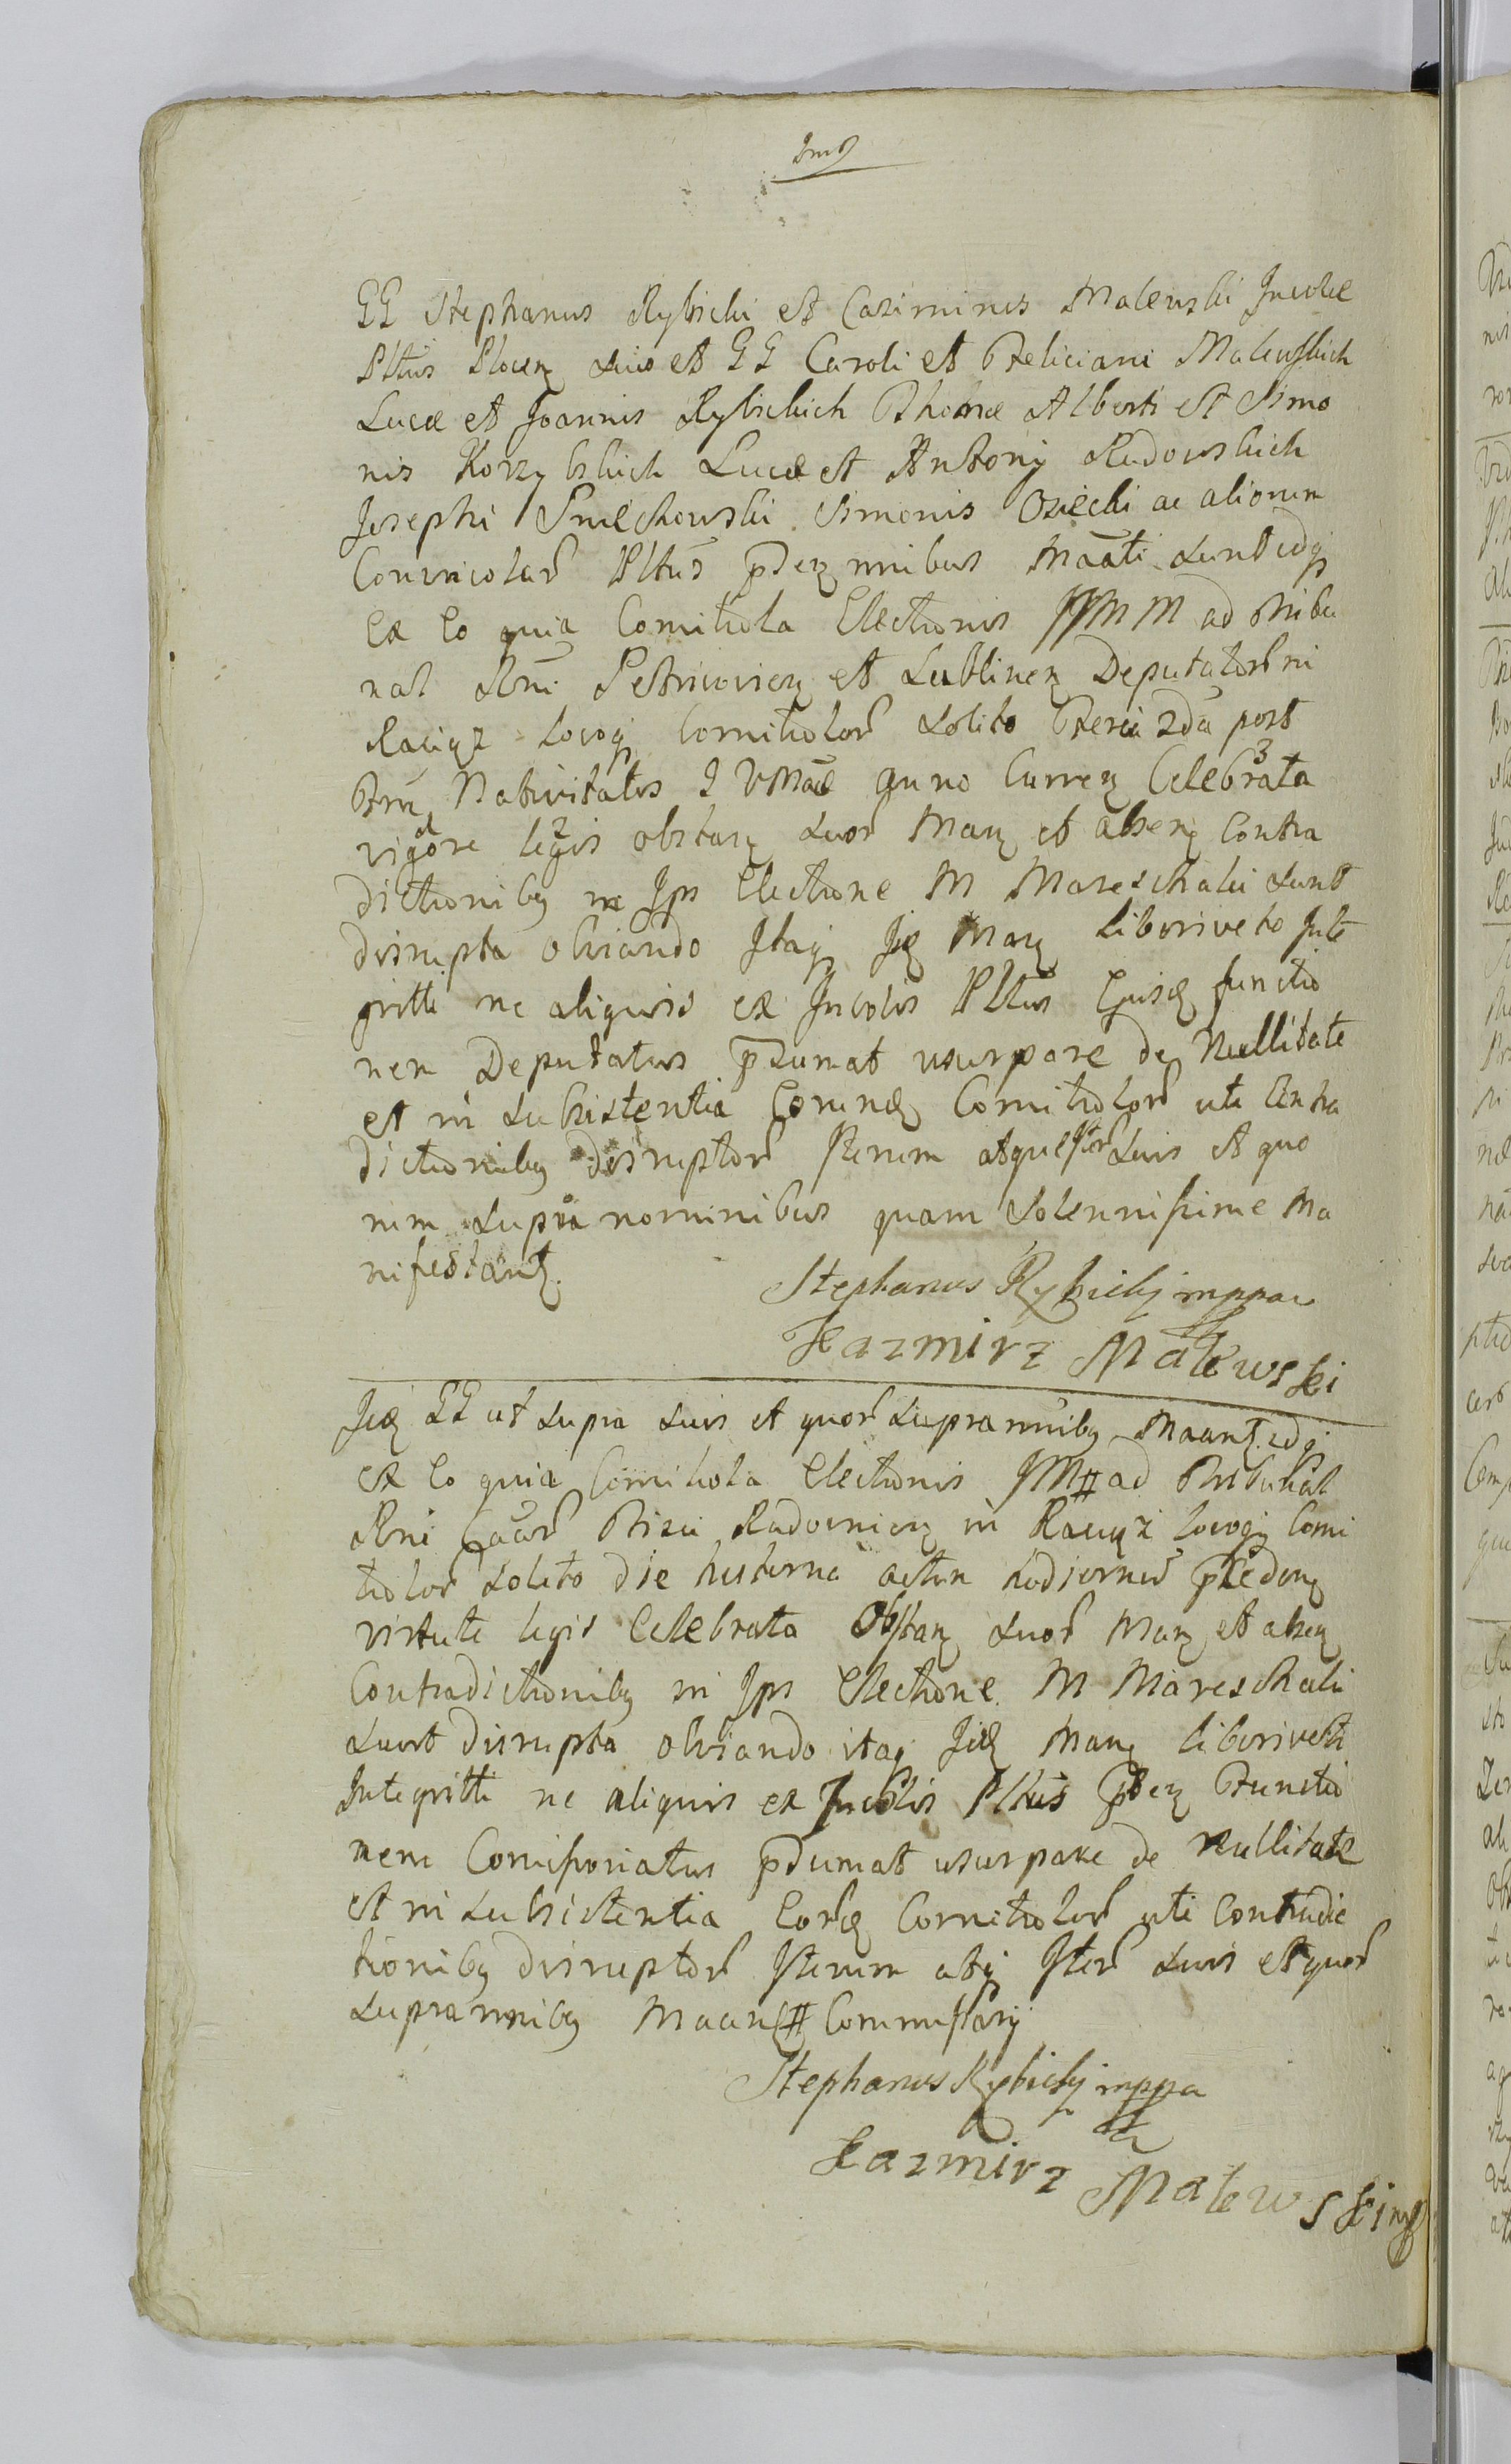 GG Stephanus Rybicki et Casimirus Malewski Incolae
Pltus Plocen suo et GG Caroli et Feliciani Malewskich
Lucae et Joannis Rybickich Thomae Alberti et Simo
nis Korzybskich Lucae et Antonij Radowskich
Josephi Smiechowski Simonis Osiecki ac aliorum
Conincolar Pltus pden nnibus Maati sunt idq
Ex eo quia Comitiola Electionis JJMM ad Tribu
nal Rni Petricovien et Lublinen Deputator in
Raciąz locoq Comitiolor solito Feria 2da post
Ftu Nativitatis BVMae anno curren Celebrata
vigore legis obstan suor Man et absen Contra
dictionibq in Ips Electione M Mareschalci sunt
disrupta obviando Itaq Iid Man liberi veto Inte
gritti ne aliquis ex Incolis Pltus Ejusd functio
nem Deputatus psumat usurpare de Nullitate
et in subsistentia Eorund Comitiolor uti Contra
dictionibq disruptor Iterum atque Iter suis et quo
rum supra nominibus quam Solennissime Ma
nifestant.
Stephanus Rybicky mppa
Kazmirz Malewski
Iid GG ut supra suis et quor supra nnibq Maant idq
ex eo quia Comitiola Electionis JM # ad Tribunal
Rni Thesauri Radomien in Raciąz locoq Comi
tiolor solito die hesterna actum hodiernum pceden
virtute legis Celebrata Obstan suor Man et absen
Contradictionibq in Ips Electione M Mareschalci
sunt disrupta obviando itaq Iid Man liberi veti
Integritti ne aliquis ex Incolis Pltus pden Functio
nem Comissoriatus psumat usurpare de Nullitate
et in subsistentia Eord Comitiolor uti Contradic
tionibq disruptor Iterum atq Iter suis et quor
supra nnibq Maant # Commissarij
Stephanus Rybicky mppa
Kazmirz Malewski mp